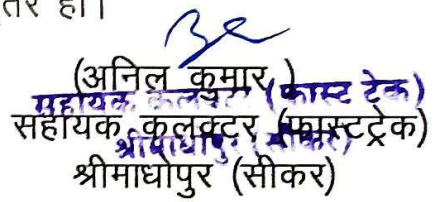 तर हो।
(अनिल कुमार )
सहायक कलक्टर (फास्ट ट्रेक)
सहायक कलक्टर (फास्टट्रेक)
श्रीमाधोपुर (सीकर)
श्रीमाधोपुर (सीकर)